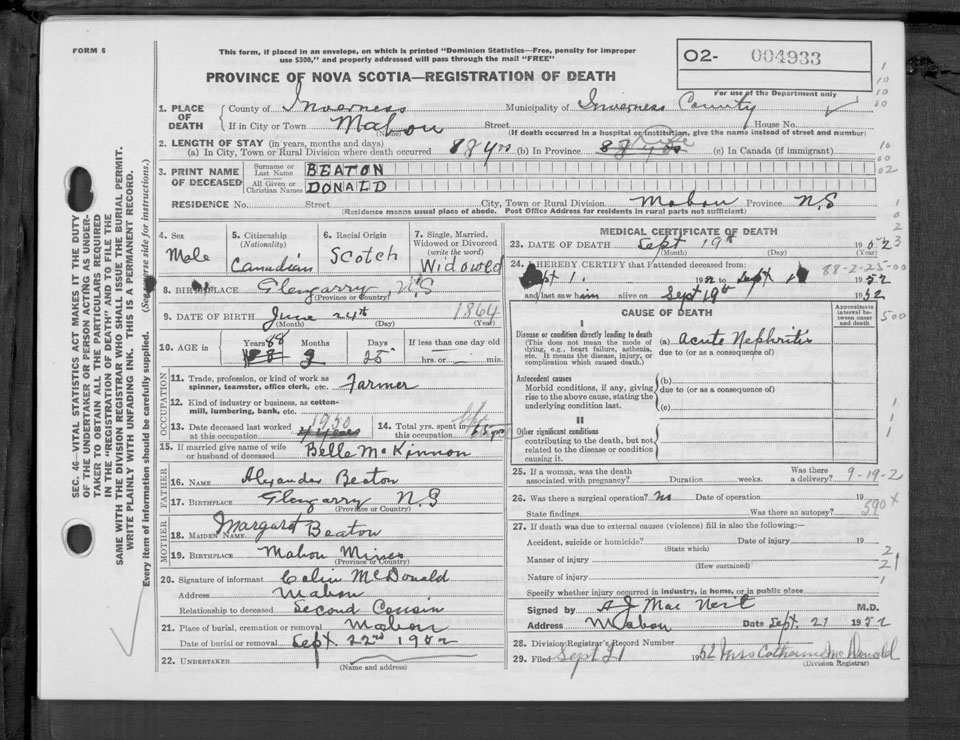 FORM 6
This form, if placed in an envelope, on which is printed "Dominion Statistics—Free, penalty for improper
use $300," and properly addressed will pass through the mail "FREE"
PROVINCE OF NOVA SCOTIA—REGISTRATION OF DEATH
O2- 004933
For use of the Department only
SEC. 46—VITAL STATISTICS ACT MAKES IT THE DUTY
OF THE UNDERTAKER OR PERSON ACTING AS UNDER-
TAKER TO OBTAIN ALL THE PARTICULARS REQUIRED
IN THE "REGISTRATION OF DEATH" AND TO FILE THE
SAME WITH THE DIVISION REGISTRAR WHO SHALL ISSUE THE BURIAL PERMIT.
WRITE PLAINLY WITH UNFADING INK. THIS IS A PERMANENT RECORD.
Every item of information should be carefully supplied. (See reverse side for instructions.)
1. PLACE OF DEATH
County of Inverness Municipality of Inverness County
If in City or Town Mabou Street House No.
(Name) (If death occurred in a hospital or institution, give the name instead of street and number)
2. LENGTH OF STAY (in years, months and days)
(a) In City, Town or Rural Division where death occurred 88 yrs (b) In Province 88 yrs Life (c) In Canada (if immigrant)
3. PRINT NAME OF DECEASED
Surname or Last Name BEATON
All Given or Christian Names DONALD
RESIDENCE No. Street City, Town or Rural Division Mabou Province N.S
(Residence means usual place of abode. Post Office Address for residents in rural parts not sufficient)
4. Sex Male
5. Citizenship (Nationality) Canadian
6. Racial Origin Scotch
7. Single, Married, Widowed or Divorced (write the word) Widowed
8. BIRTHPLACE Glengarry, N.S
(Province or Country)
9. DATE OF BIRTH June 24th 1864
(Month) (Day) (Year)
10. AGE in Years 88 Months 2 Days 25 If less than one day old hrs. or min.
OCCUPATION
11. Trade, profession, or kind of work as spinner, teamster, office clerk, etc. Farmer
12. Kind of industry or business, as cotton-mill, lumbering, bank, etc.
13. Date deceased last worked at this occupation 1950
14. Total yrs. spent in this occupation life
15. If married give name of wife or husband of deceased Belle McKinnon
FATHER
16. NAME Alexander Beaton
17. BIRTHPLACE Glengarry N.S
(Province or Country)
MOTHER
18. MAIDEN NAME Margaret Beaton
19. BIRTHPLACE Mabou Mines
(Province or Country)
20. Signature of informant Colin McDonald
Address Mabou
Relationship to deceased Second Cousin
21. Place of burial, cremation or removal Mabou
Date of burial or removal Sept. 22nd 1952
22. UNDERTAKER
(Name and address)
MEDICAL CERTIFICATE OF DEATH
23. DATE OF DEATH Sept 19th 1952
(Month) (Day) (Year)
24. I HEREBY CERTIFY that I attended deceased from:
Sept 1. 1952 to Sept 1952
88-2-25-00
and last saw him alive on Sept 19th 1952
CAUSE OF DEATH
Approximate interval between onset and death
I
Disease or condition directly leading to death
(This does not mean the mode of dying, e.g., heart failure, asthenia, etc. It means the disease, injury, or complication which caused death.)
(a) Acute Nephritis
due to (or as a consequence of)
Antecedent causes
Morbid conditions, if any, giving rise to the above cause, stating the underlying condition last.
(b)
due to (or as a consequence of)
(c)
II
Other significant conditions
contributing to the death, but not related to the disease or condition causing it.
25. If a woman, was the death associated with pregnancy? Duration weeks. Was there a delivery?
9-19-2
26. Was there a surgical operation? No Date of operation 19
State findings Was there an autopsy?
590 X
27. If death was due to external causes (violence) fill in also the following:—
Accident, suicide or homicide? Date of injury 19
(State which)
Manner of injury
(How sustained)
Nature of injury
Specify whether injury occurred in industry, in home, or in public place
Signed by A J MacNeil M.D.
Address Mabou Date Sept. 21 1952
28. Division Registrar's Record Number
29. Filed Sept 21 1952 Mrs Catharine McDonald
(Division Registrar)